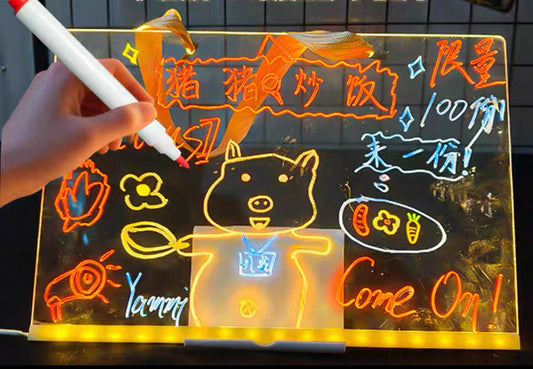 猪猪炒饭
限量
100份
来一份!
Yammi
Come On!